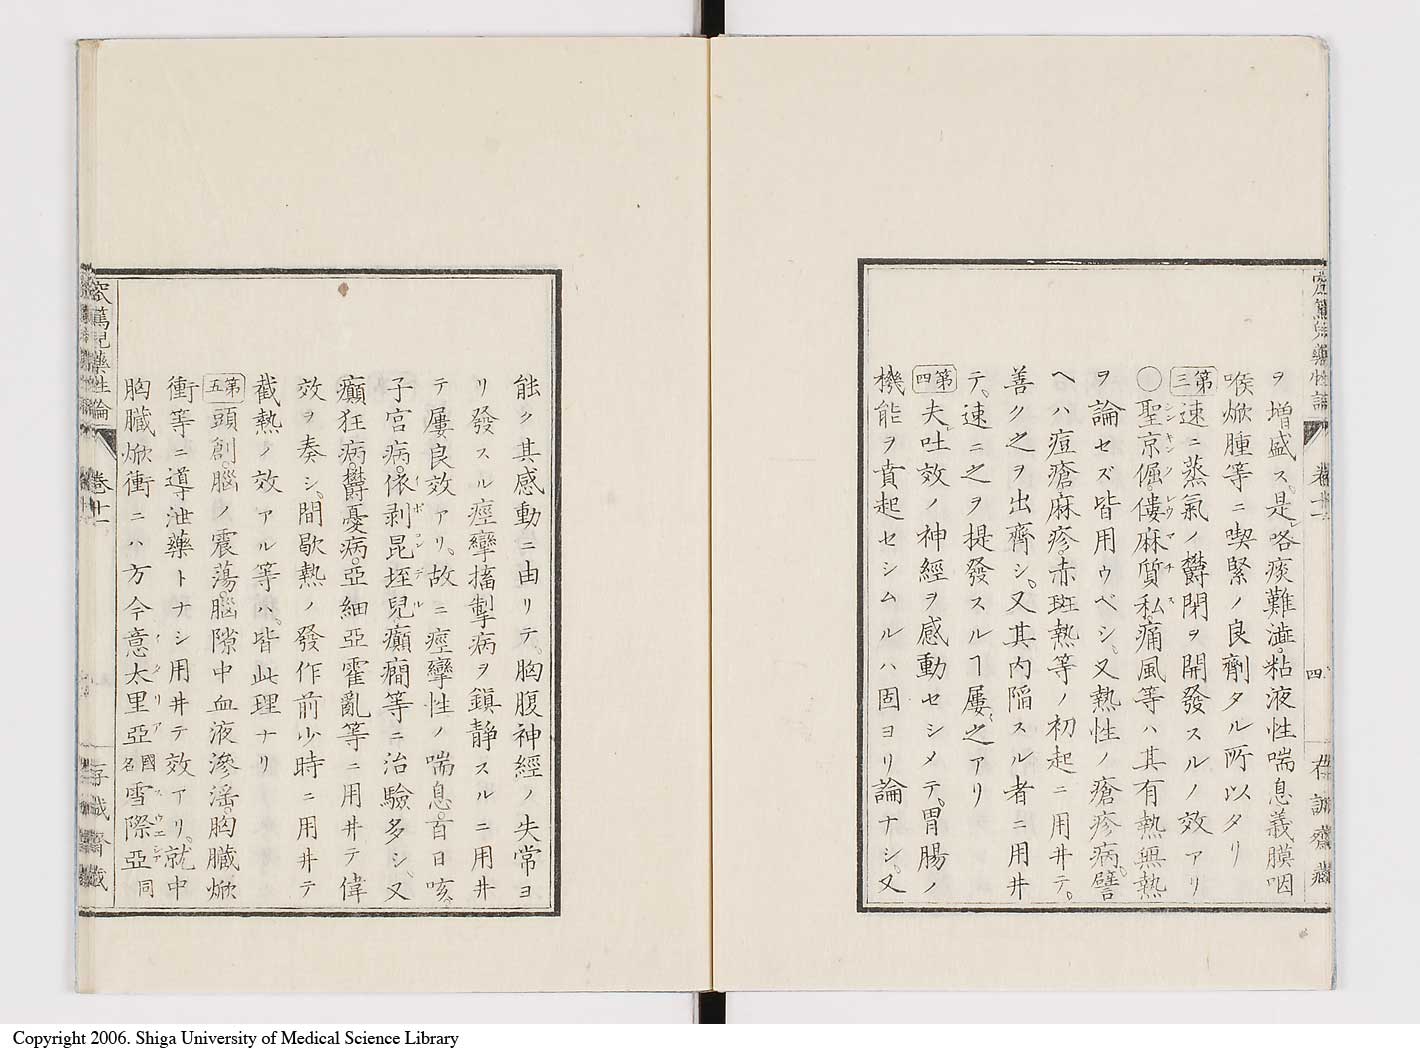 ヲ増盛ス。是レ咯痰難澁。粘液性喘息義膜咽
喉焮腫等ニ喫緊ノ良劑タル所以タリ
第三 速ニ蒸氣ノ欝閉ヲ開發スルノ效アリ
○聖京倔。僂麻質私。痛風等ハ其有熱無熱
シンキンノ レウマチス
ヲ論セズ皆用ウベシ、又熱性ノ瘡疹病。譬
ヘハ痘瘡麻疹。赤斑熱等ノ初起ニ用井テ。
善ク之ヲ出齊シ。又其内陷スル者ニ用井
テ。速ニ之ヲ提發スルヿ屢之アリ
第四 夫レ吐效ノ神經ヲ感動セシメテ。胃腸ノ
機能ヲ賁起セシムルハ固ヨリ論ナシ。又
能ク其感動ニ由リテ。胸腹神經ノ失常ヨ
リ發スル痙攣搐掣病ヲ鎮静スルニ用井
テ屢良效アリ。故ニ痙攣性ノ喘息。百日咳、
子宮病。依剥昆垤兒癲癇等ニ治驗多シ、又
イポコンデル
癲狂病。欝憂病。亞細亞霍亂等ニ用井テ偉
效ヲ奏シ、間歇熱ノ發作前少時ニ用井テ
截熱ノ效アル等ハ。皆此理ナリ
第五 頭創。腦ノ震蕩。腦隙中血液滲漏。胸臓焮
衝等ニ導泄藥トナシ用井テ效アリ。就中
胸臓焮衝ニハ方今意太里亞國名雪際亞同
イタリア スウエシア
窊篤兒藥性論
卷十一
四
存誠齋藏